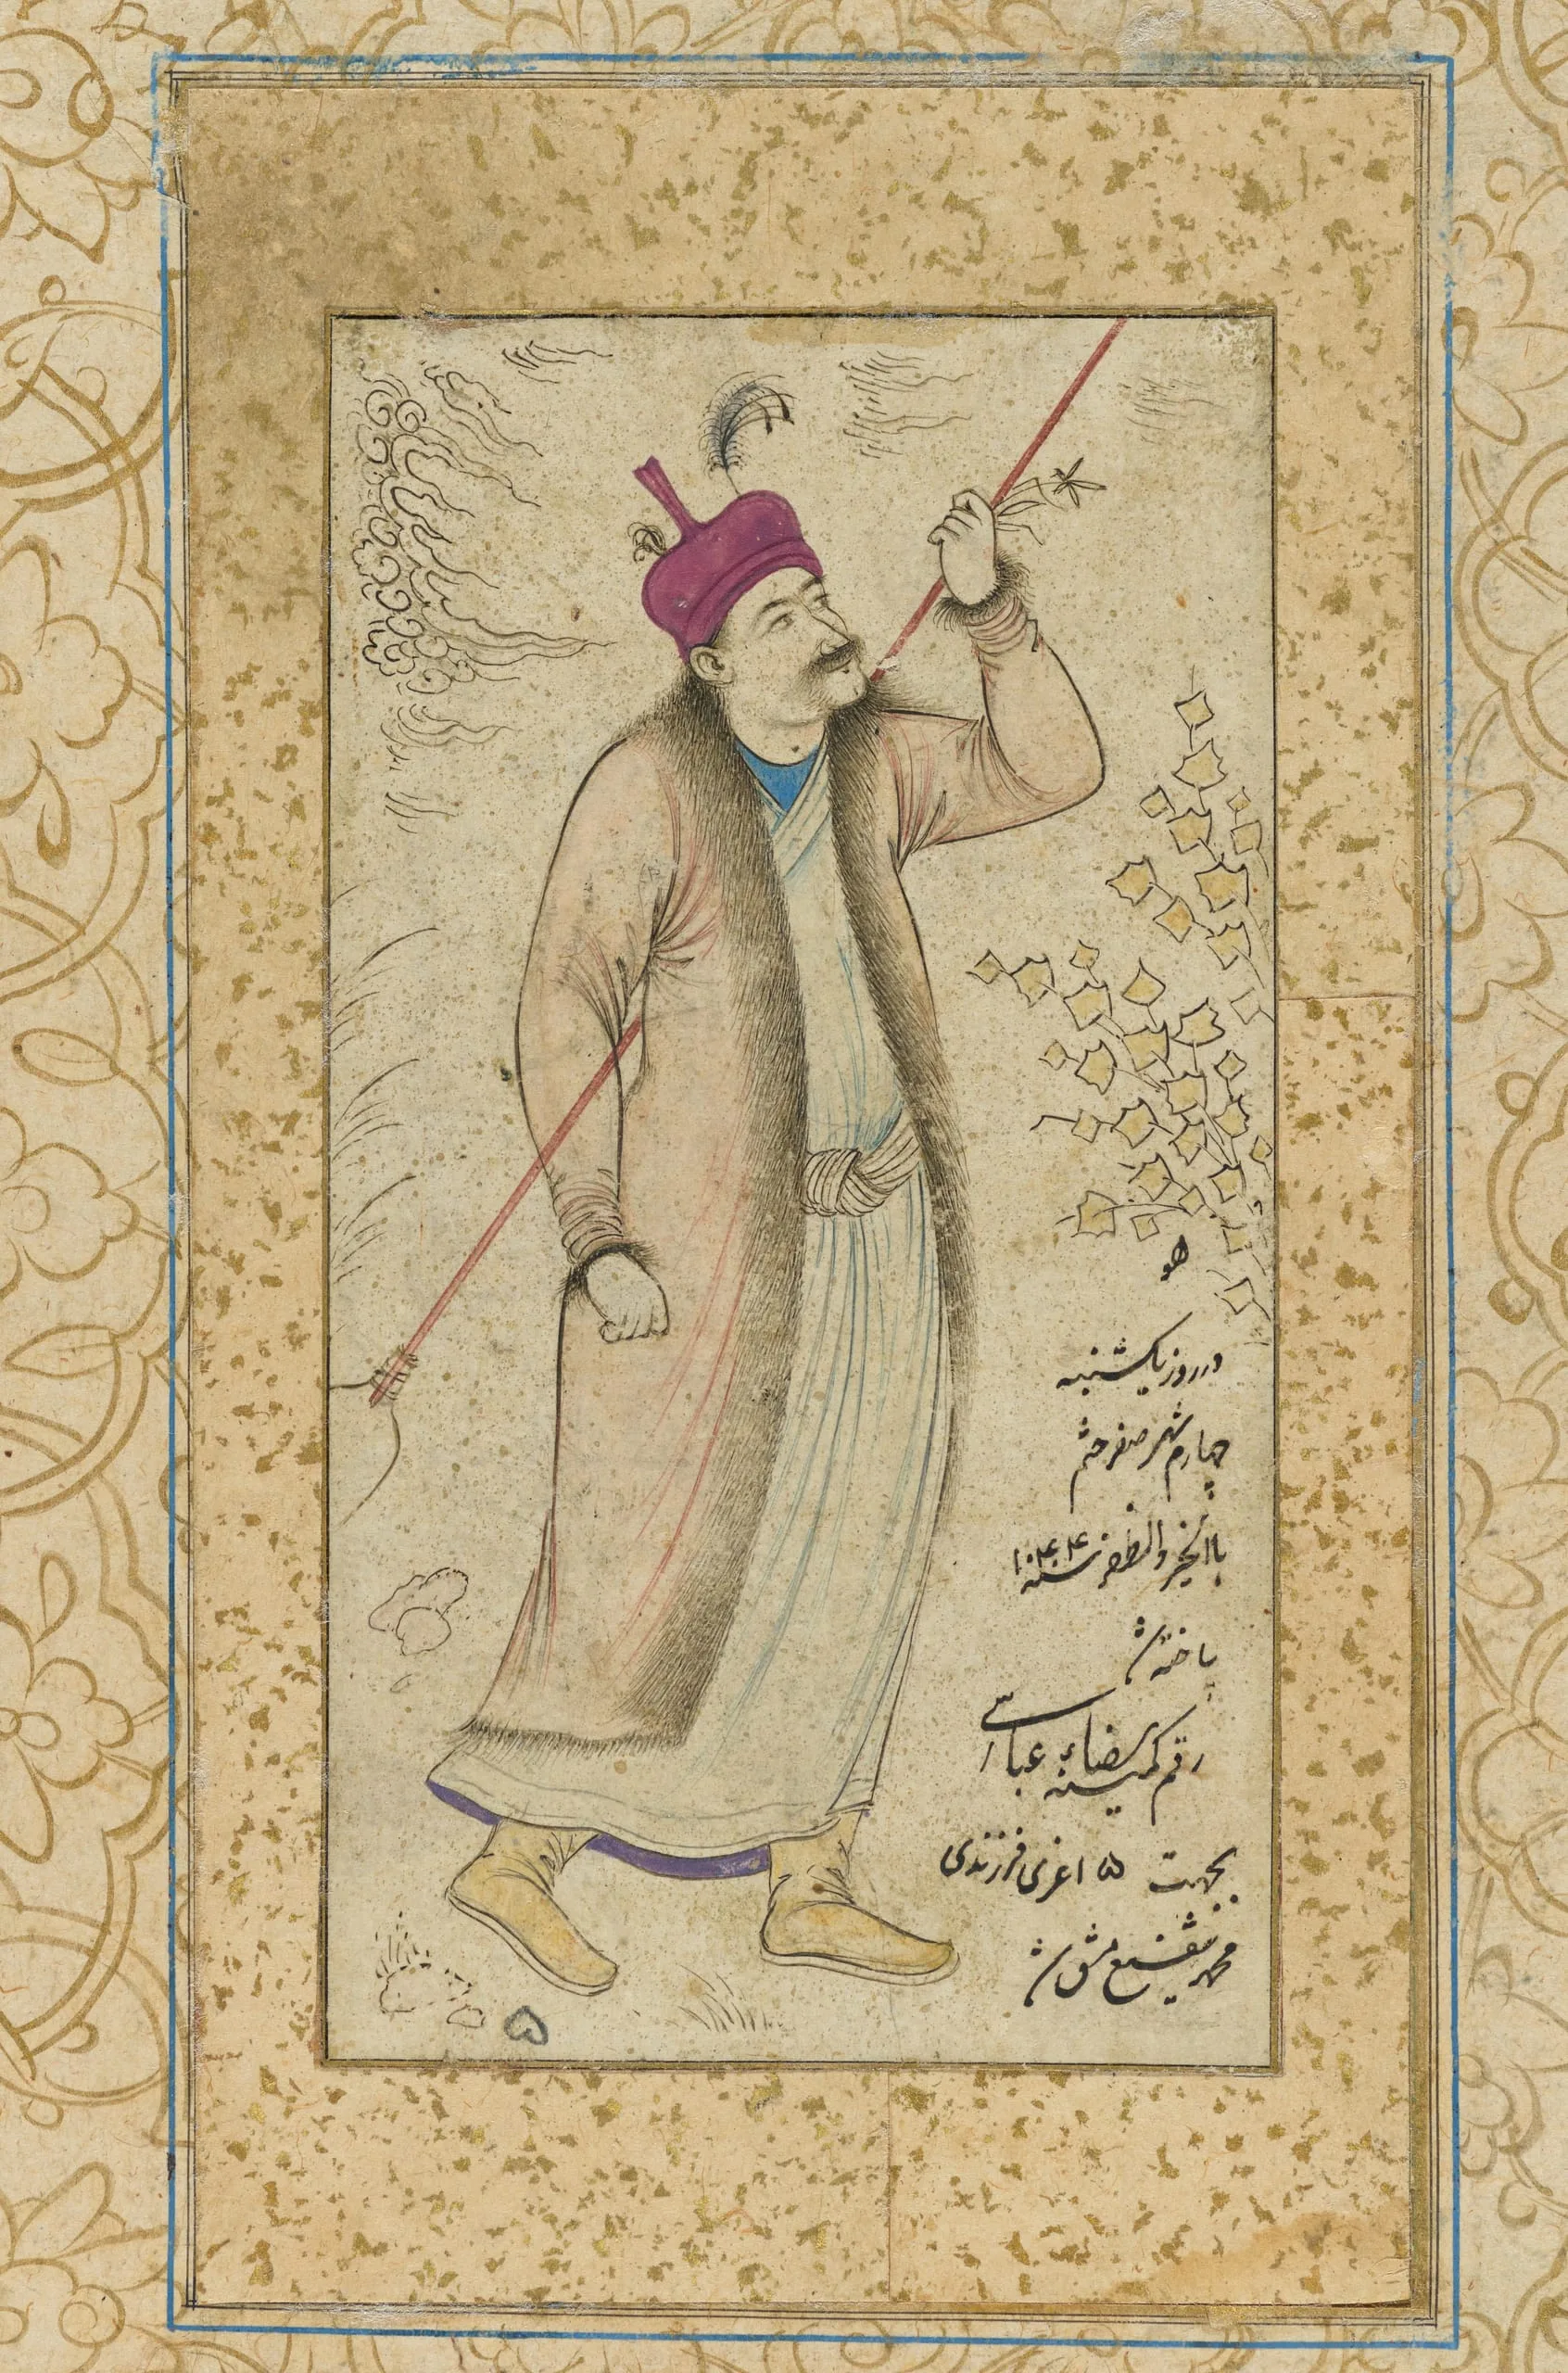 هو
در روز یکشنبه
چهارم شهر صفر ختم
بالخیر والظفر سنه ۱۰۴۴
ساخته شد
رقم کمینه رضاء عباسی
بجهت اعزی فرزندی
محمد شفیع مشق شد
۵